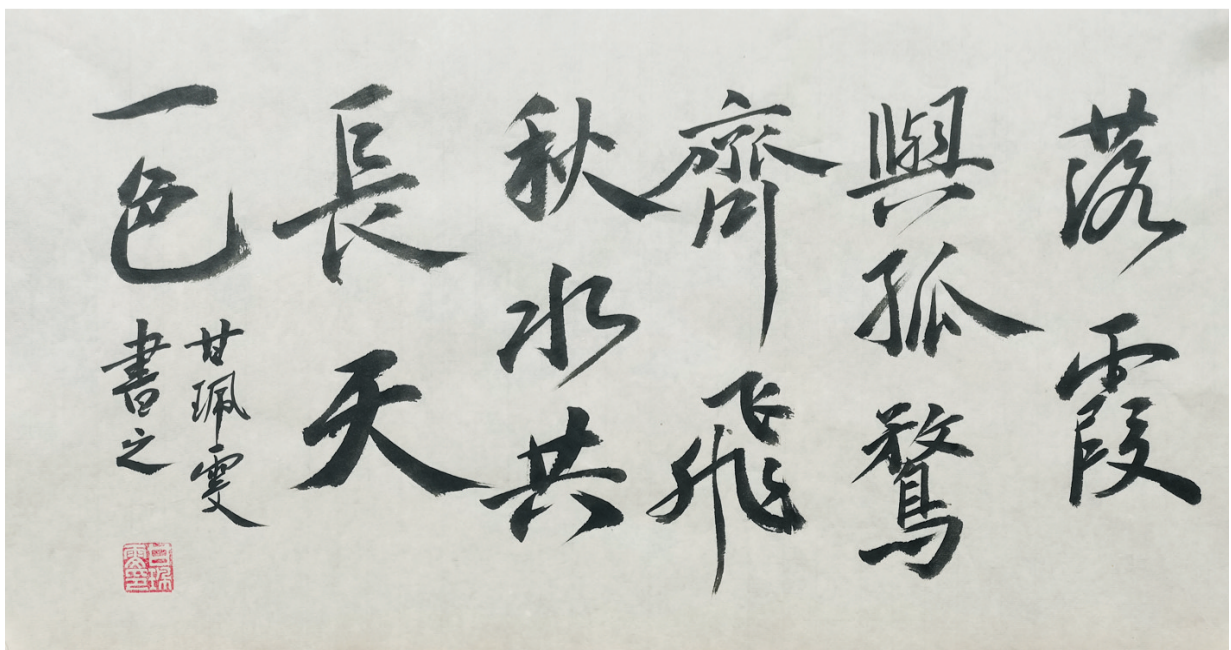 落霞
與孤鶩
齊飛
秋水共
長天
一色
甘珮雯
書之